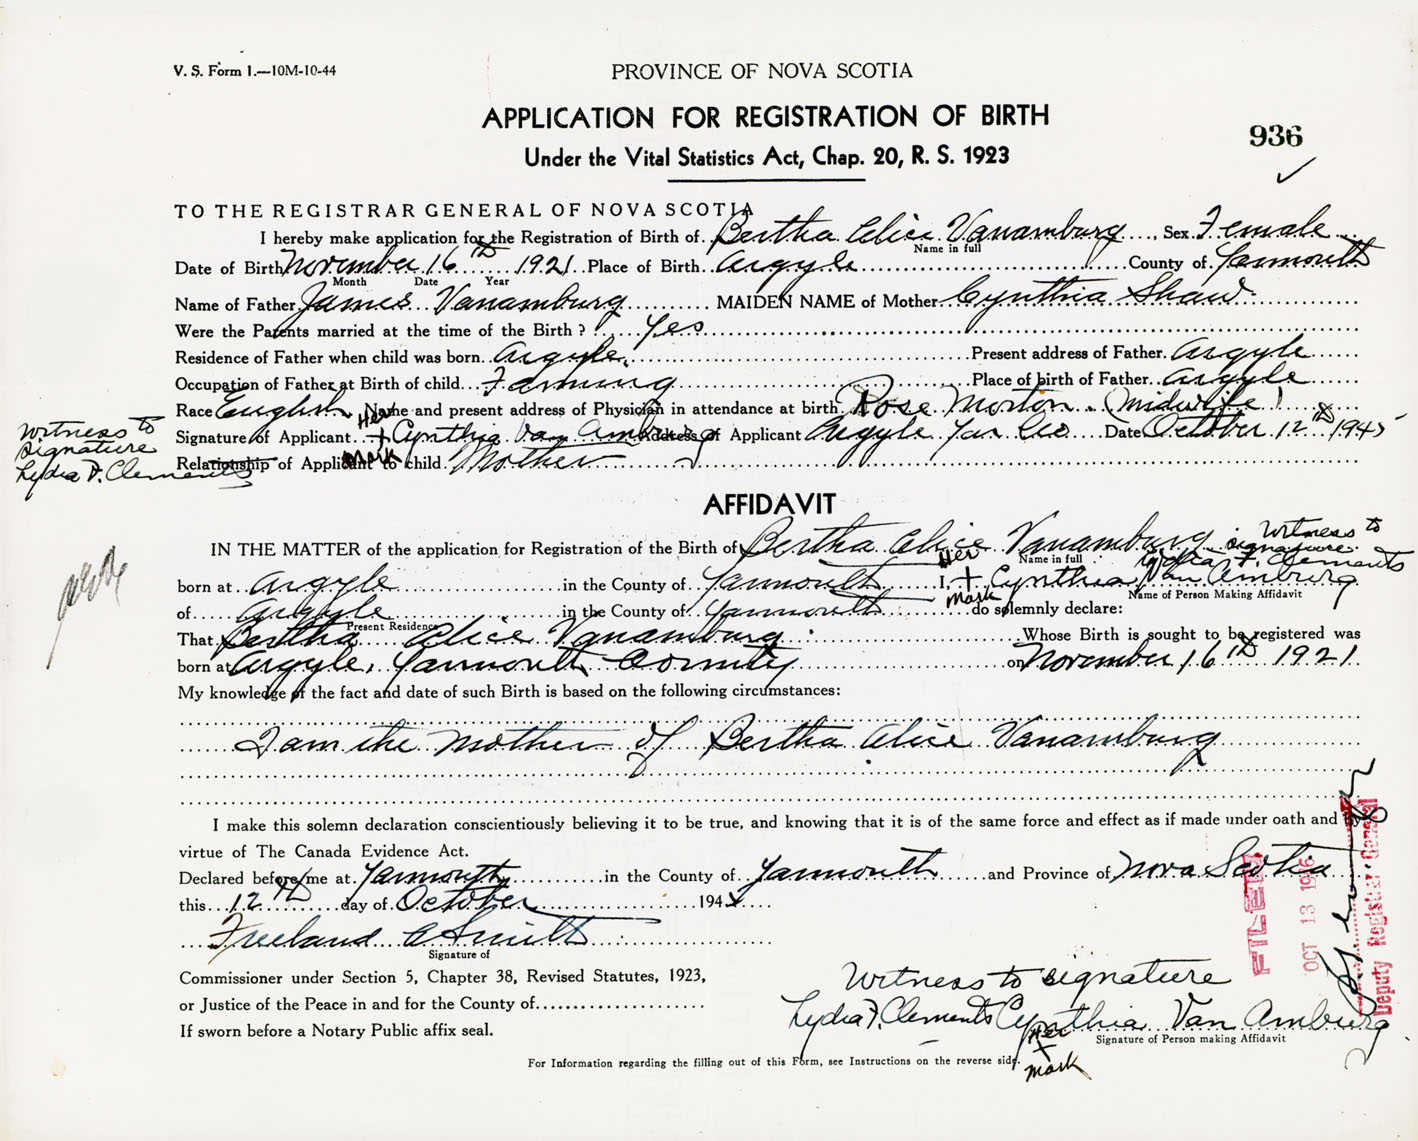 V. S. Form 1.—10M-10-44
PROVINCE OF NOVA SCOTIA
APPLICATION FOR REGISTRATION OF BIRTH
936
Under the Vital Statistics Act, Chap. 20, R. S. 1923
TO THE REGISTRAR GENERAL OF NOVA SCOTIA
I hereby make application for the Registration of Birth of Bertha Alice Vanamburg, Sex Female
Name in full
Date of Birth November 16th 1921 Place of Birth Argyle County of Yarmouth
Month Date Year
Name of Father James Vanamburg MAIDEN NAME of Mother Cynthia Shaw
Were the Parents married at the time of the Birth? Yes
Residence of Father when child was born Argyle Present address of Father Argyle
Occupation of Father at Birth of child Farming Place of birth of Father Argyle
Race English Name and present address of Physician in attendance at birth Rose Morton (Midwife)
Witness to signature Lydia F. Clements
Signature of Applicant Her + mark Cynthia Van Amburg Address of Applicant Argyle Yar Co Date October 12th 1945
Relationship of Applicant to child Mother
AFFIDAVIT
IN THE MATTER of the application for Registration of the Birth of Bertha Alice Vanamburg
Name in full
Witness to signature Lydia F. Clements
born at Argyle in the County of Yarmouth I, Her + mark Cynthia Van Amburg
Name of Person Making Affidavit
of Argyle in the County of Yarmouth do solemnly declare:
Present Residence
That Bertha Alice Vanamburg Whose Birth is sought to be registered was
born at Argyle, Yarmouth County on November 16th 1921
My knowledge of the fact and date of such Birth is based on the following circumstances:
I am the Mother of Bertha Alice Vanamburg
I make this solemn declaration conscientiously believing it to be true, and knowing that it is of the same force and effect as if made under oath and by
virtue of The Canada Evidence Act.
Declared before me at Yarmouth in the County of Yarmouth and Province of Nova Scotia
this 12th day of October 1945
Freeland A Smith
Signature of
Commissioner under Section 5, Chapter 38, Revised Statutes, 1923,
or Justice of the Peace in and for the County of
If sworn before a Notary Public affix seal.
Witness to signature
Lydia F. Clements Cynthia Van Amburg
Her + mark
Signature of Person making Affidavit
For Information regarding the filling out of this Form, see Instructions on the reverse side.
FILED
OCT 13 19
Deputy Registrar General